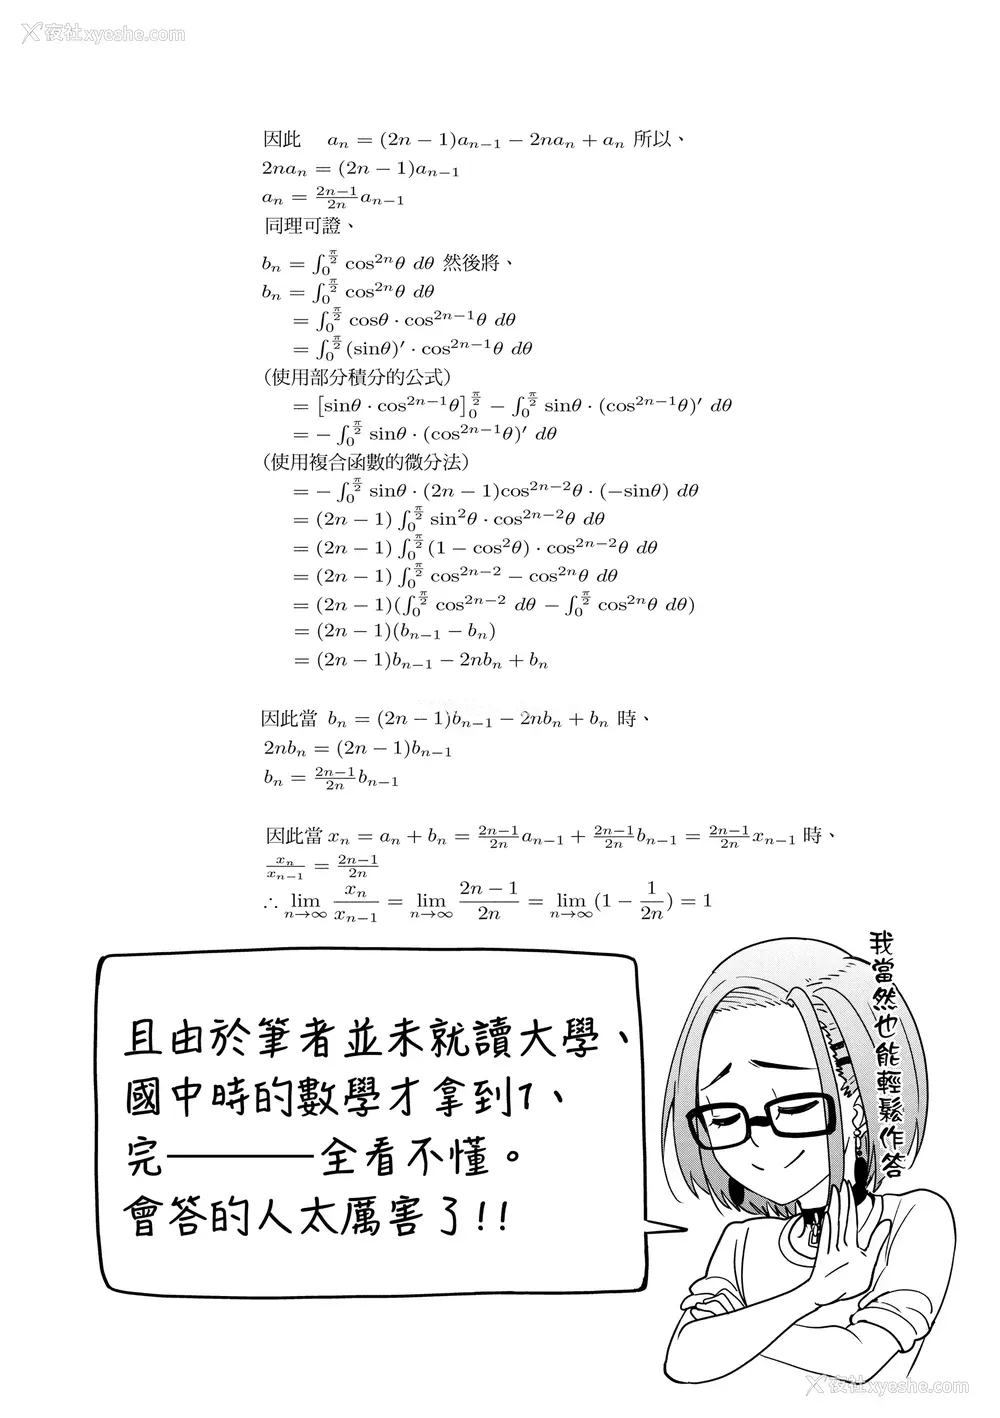 夜社xyeshe.com
因此 aₙ = (2n − 1)aₙ₋₁ − 2naₙ + aₙ 所以、
2naₙ = (2n − 1)aₙ₋₁
aₙ = \frac{2n−1}{2n}aₙ₋₁
同理可證、
bₙ = ∫_0^{\frac{π}{2}} cos²ⁿθ dθ 然後將、
bₙ = ∫_0^{\frac{π}{2}} cos²ⁿθ dθ
= ∫_0^{\frac{π}{2}} cosθ · cos²ⁿ⁻¹θ dθ
= ∫_0^{\frac{π}{2}} (sinθ)′ · cos²ⁿ⁻¹θ dθ
(使用部分積分的公式)
= [sinθ · cos²ⁿ⁻¹θ]_0^{\frac{π}{2}} − ∫_0^{\frac{π}{2}} sinθ · (cos²ⁿ⁻¹θ)′ dθ
= − ∫_0^{\frac{π}{2}} sinθ · (cos²ⁿ⁻¹θ)′ dθ
(使用複合函數的微分法)
= − ∫_0^{\frac{π}{2}} sinθ · (2n − 1)cos²ⁿ⁻²θ · (−sinθ) dθ
= (2n − 1) ∫_0^{\frac{π}{2}} sin²θ · cos²ⁿ⁻²θ dθ
= (2n − 1) ∫_0^{\frac{π}{2}} (1 − cos²θ) · cos²ⁿ⁻²θ dθ
= (2n − 1) ∫_0^{\frac{π}{2}} cos²ⁿ⁻² − cos²ⁿθ dθ
= (2n − 1)(∫_0^{\frac{π}{2}} cos²ⁿ⁻² dθ − ∫_0^{\frac{π}{2}} cos²ⁿθ dθ)
= (2n − 1)(bₙ₋₁ − bₙ)
= (2n − 1)bₙ₋₁ − 2nbₙ + bₙ
因此當 bₙ = (2n − 1)bₙ₋₁ − 2nbₙ + bₙ 時、
2nbₙ = (2n − 1)bₙ₋₁
bₙ = \frac{2n−1}{2n}bₙ₋₁
因此當 xₙ = aₙ + bₙ = \frac{2n−1}{2n}aₙ₋₁ + \frac{2n−1}{2n}bₙ₋₁ = \frac{2n−1}{2n}xₙ₋₁ 時、
\frac{xₙ}{xₙ₋₁} = \frac{2n−1}{2n}
∴ lim_{n→∞} \frac{xₙ}{xₙ₋₁} = lim_{n→∞} \frac{2n − 1}{2n} = lim_{n→∞} (1 − \frac{1}{2n}) = 1
我當然也能輕鬆作答
且由於筆者並未就讀大學、
國中時的數學才拿到1、
完————全看不懂。
會答的人太厲害了!!
夜社xyeshe.com